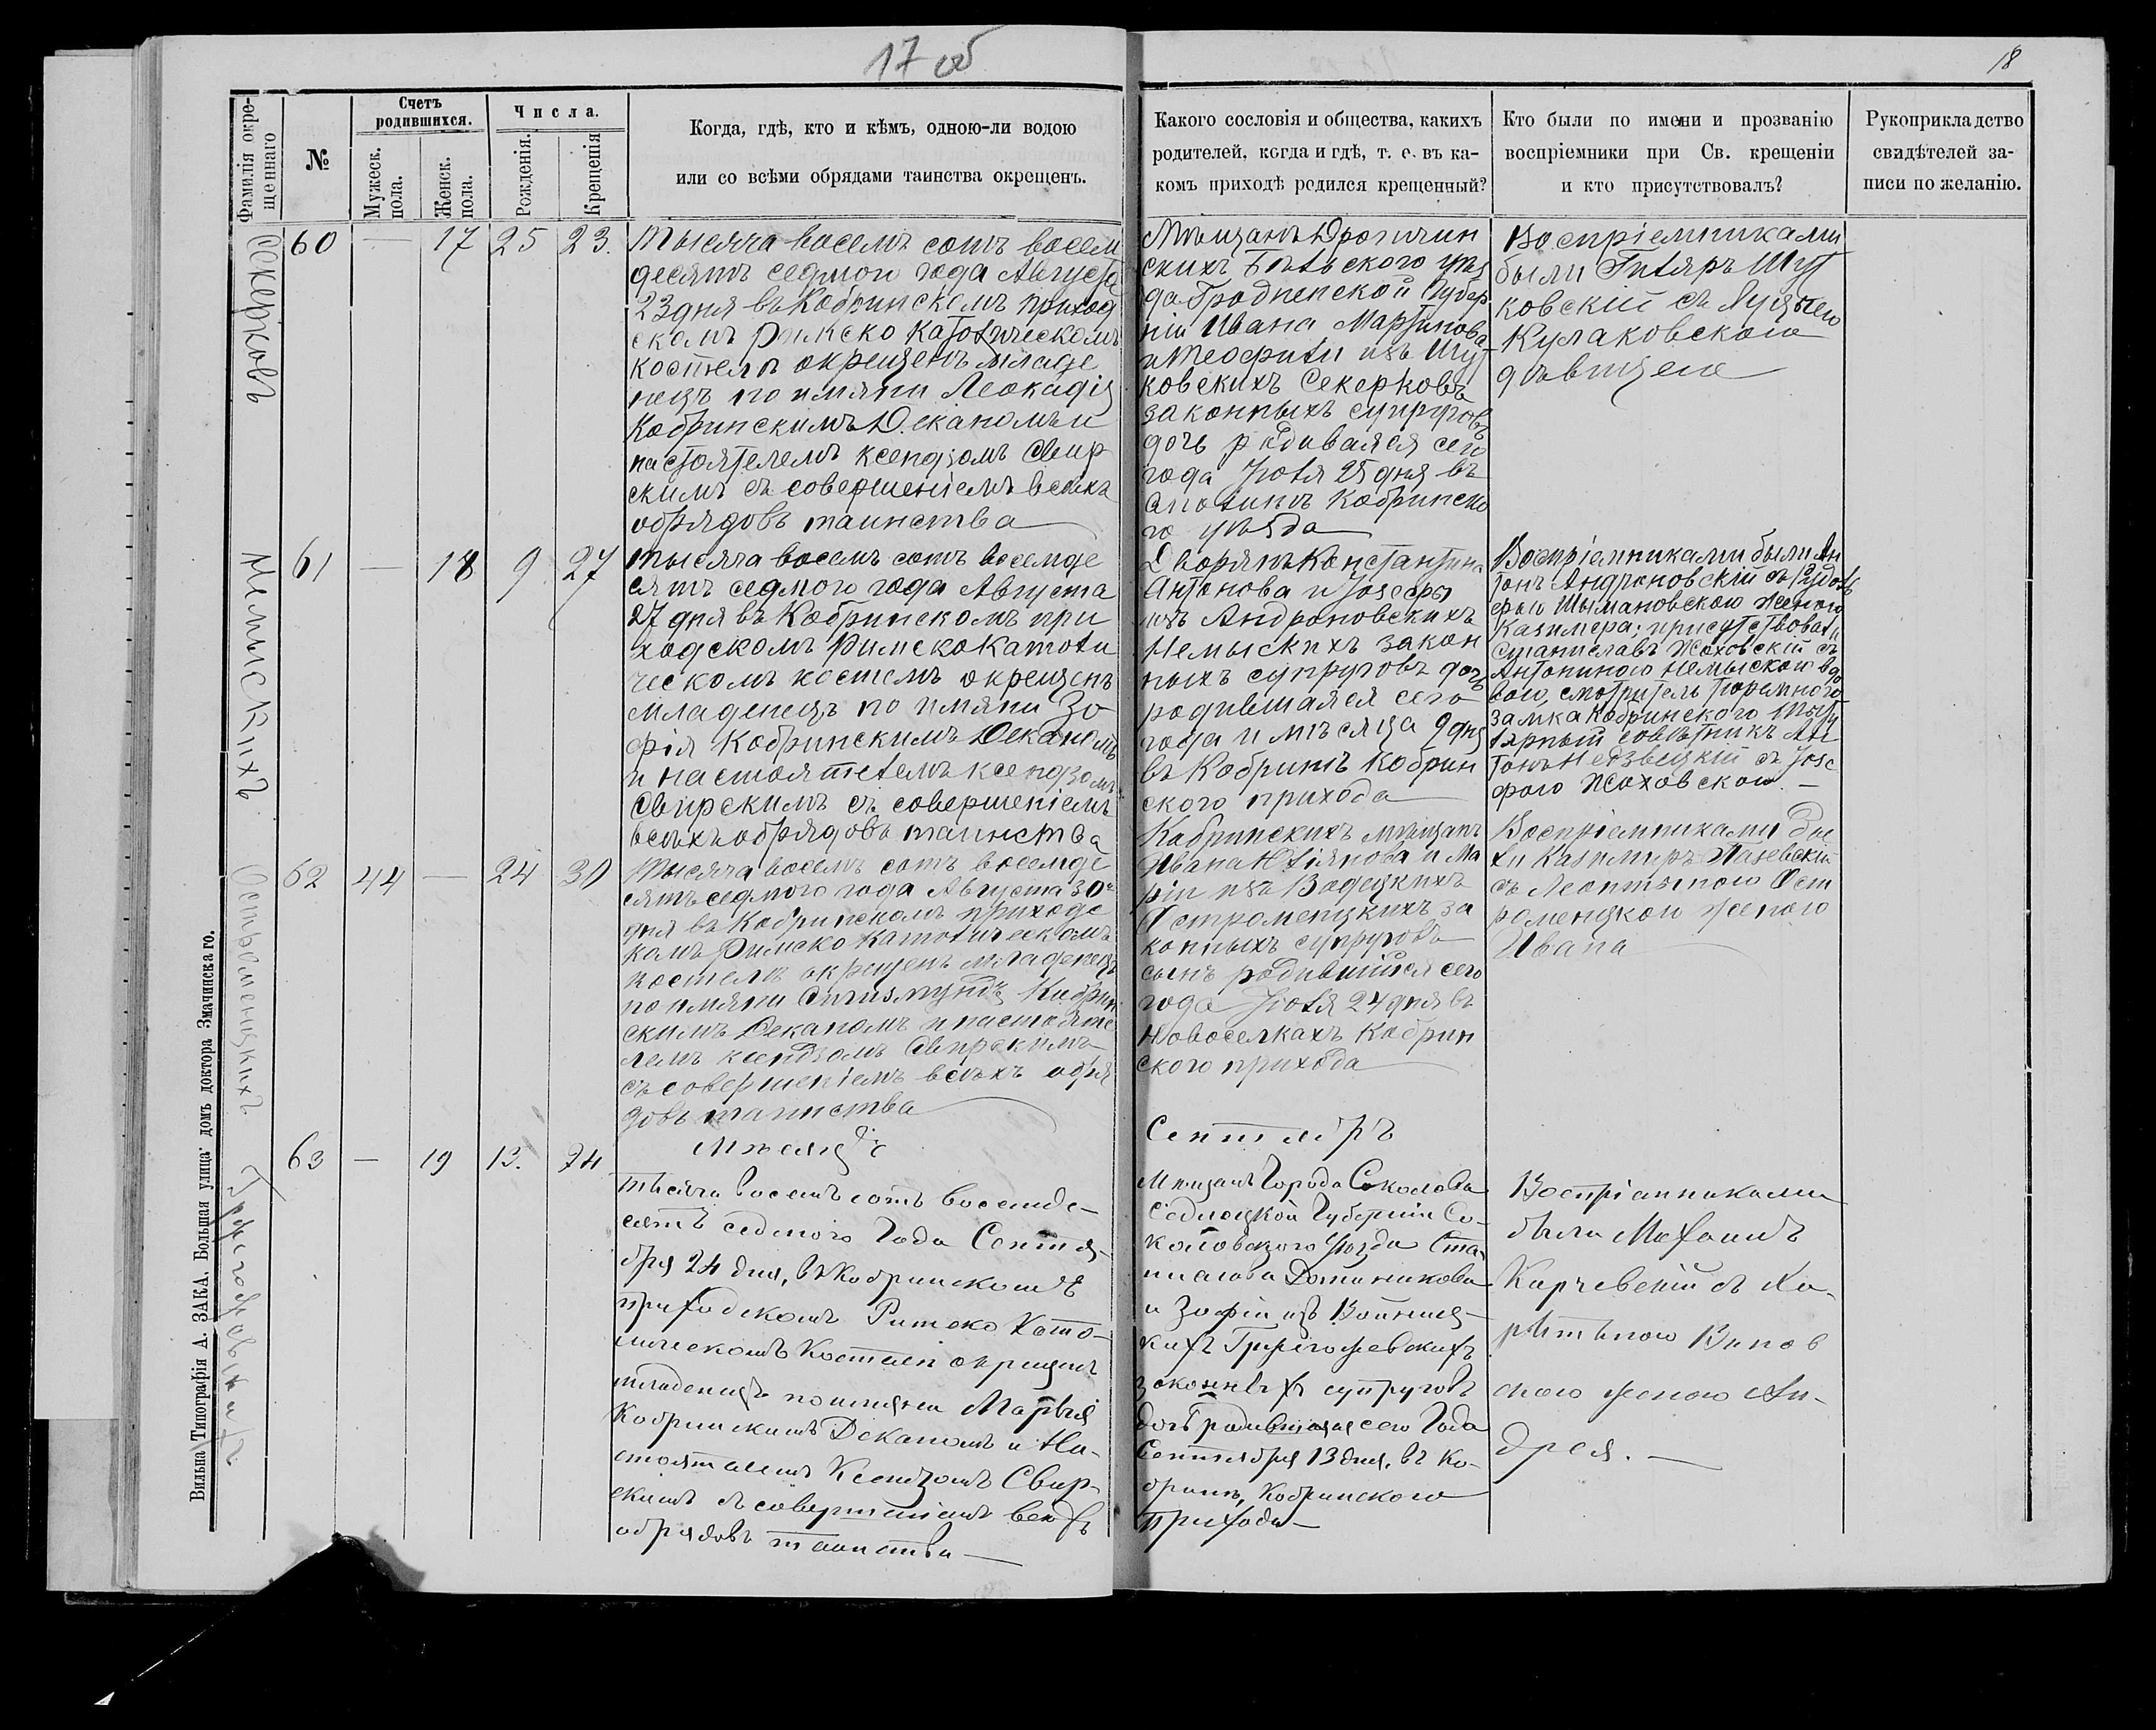 17 об
18
Фамилія окре-
щеннаго
№
Счетъ
родившихся.
Мужеск.
пола.
Женск.
пола.
Числа.
Рожденія.
Крещенія
Когда, гдѣ, кто и кѣмъ, одною-ли водою
или со всѣми обрядами таинства окрещенъ.
Какого сословія и общества, какихъ
родителей, когда и гдѣ, т. е. въ ка-
комъ приходѣ родился крещенный?
Кто были по имени и прозванію
воспріемники при Св. крещеніи
и кто присутствовалъ?
Рукоприкладство
свидѣтелей за-
писи по желанію.
Секерковъ
60 — 17 25 23.
Тысяча восемъ сотъ восем
десятъ седмого года Августа
23 дня въ Кобринскомъ приход
скомъ Римско Католическомъ
костелѣ окрещенъ младе
нецъ по имяни Леокадія
Кобринскимъ Деканомъ и
настоятелемъ ксендзомъ Свир
скимъ съ совершеніемъ всѣхъ
обрядовъ таинства
Мѣщанъ Дрогичин
скихъ Бѣльского уѣз
да Гродненской Губер
ніи Ивана Мартинова
и Теофили изъ Шут
ковскихъ Секерковъ
законныхъ супруговъ
дочь родившаяся сего
года Іюля 25 дня въ
Кобринско
го уѣзда
Воспріемниками
были Гиляръ Шут
ковскій съ Луцыею
Кулаковскою
дѣвицею
Немыскихъ
61 — 18 9 27
Тысяча восемъ сотъ восемде
сятъ седмого года Августа
27 дня въ Кобринскомъ при
ходскомъ Римско Католи
ческомъ костелѣ окрещенъ
младенецъ по имяни Зо
фія Кобринскимъ Деканомъ
и настоятелемъ ксендзомъ
Свирскимъ съ совершеніемъ
всѣхъ обрядовъ таинства
Дворянъ Константина
Антонова и Іосефы
изъ Андроновскихъ
Немыскихъ закон
ныхъ супруговъ дочь
родившаяся сего
года и мѣсяца 9 дня
въ Кобринѣ Кобрин
ского прихода
Воспріемниками были Ан
тонъ Андроновскій съ
фою Шымановскою женою
Казимера; присутствовали
Станиславъ Жоховскій съ
Антониною Немыскою вдо
вою, смотритель тюремного
замка Кобринского Титу
лярный совѣтникъ Ан
тонъ съ Іосе
фою Жоховскою. —
Остромецкихъ
62 44 — 24 30
Тысяча восемъ сотъ восемде
сятъ седмого года Августа 30
дня въ Кобринскомъ приходс
комъ Римско Католическомъ
костелѣ окрещенъ младенецъ
по имяни Сигизмундъ Кобрин
скимъ Деканомъ и настояте
лемъ ксендзомъ Свирскимъ
съ совершеніемъ всѣхъ обря
довъ таинства
Кобринскихъ мѣщанъ
Ивана Юліянова и Ма
ріи изъ Вадецкихъ
Остромецкихъ за
конныхъ супруговъ
сынъ родившійся сего
года Іюля 24 дня въ
Новоселкахъ Кобрин
ского прихода
Воспріемниками бы
ли Казимиръ
съ Леонтыною Ост
ромецкою женою
Ивана
Мѣсяцъ
Сентябръ
63 — 19 13. 24
Тысяча восемъ сотъ восемде-
сятъ седмого Года Сентя-
бря 24 дня, въ Кобринскомъ
приходскомъ Римско Като-
лическомъ Костелѣ окрещенъ
младенецъ по имяни Марыя
Кобринскимъ Деканомъ и На-
стоятелемъ Ксендзомъ Свир-
скимъ съ совершеніемъ всѣхъ
обрядовъ таинства —
Мѣщанъ Города Соколова
Сѣдлецкой Губерніи Со-
коловского Уѣзда Ста-
нислава Доминикова
и Зофіи изъ
кихъ
законныхъ супруговъ
дочь родившаяся сего Года
Сентября 13 дня, въ Ко-
бринѣ, Кобринского
Прихода —
Воспріемниками
были
Карчевскій съ Ка-
ролиною
скою женою Ан-
дрея. —
Вильна Типографія А. ЗАКА. Большая улица: домъ доктора Змачинскаго.